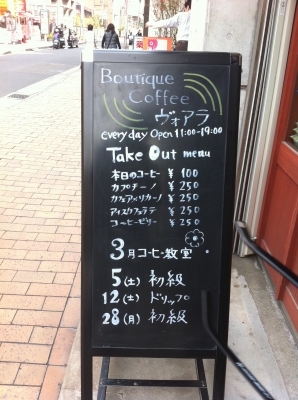 Boutique
Coffee
ヴォアラ
every day Open 11:00-19:00
Take Out menu
本日のコーヒー ¥100
カプチーノ ¥250
カフェアメリカーノ ¥250
アイスカフェラテ ¥250
コーヒーゼリー ¥250
3月コーヒー教室。
5(土) 初級
12(土) ドリップ
28(月) 初級